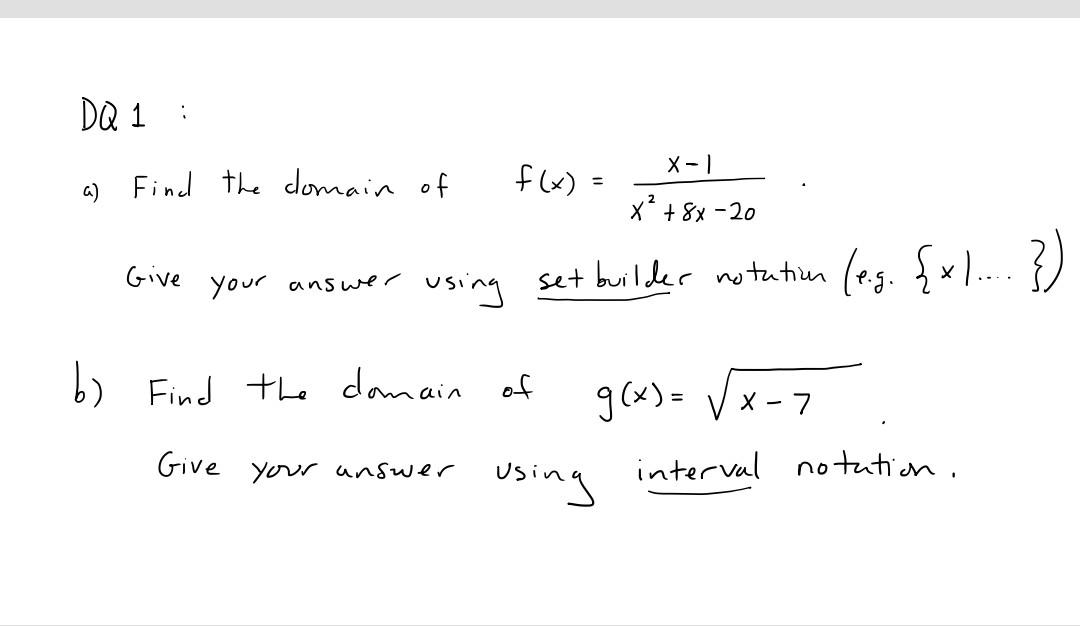 DQ 1 :
a) Find the domain of f(x) = (x-1)/(x² + 8x - 20) .
Give your answer using set builder notation (e.g. {x|.... })
b) Find the domain of g(x) = √(x-7) .
Give your answer using interval notation.